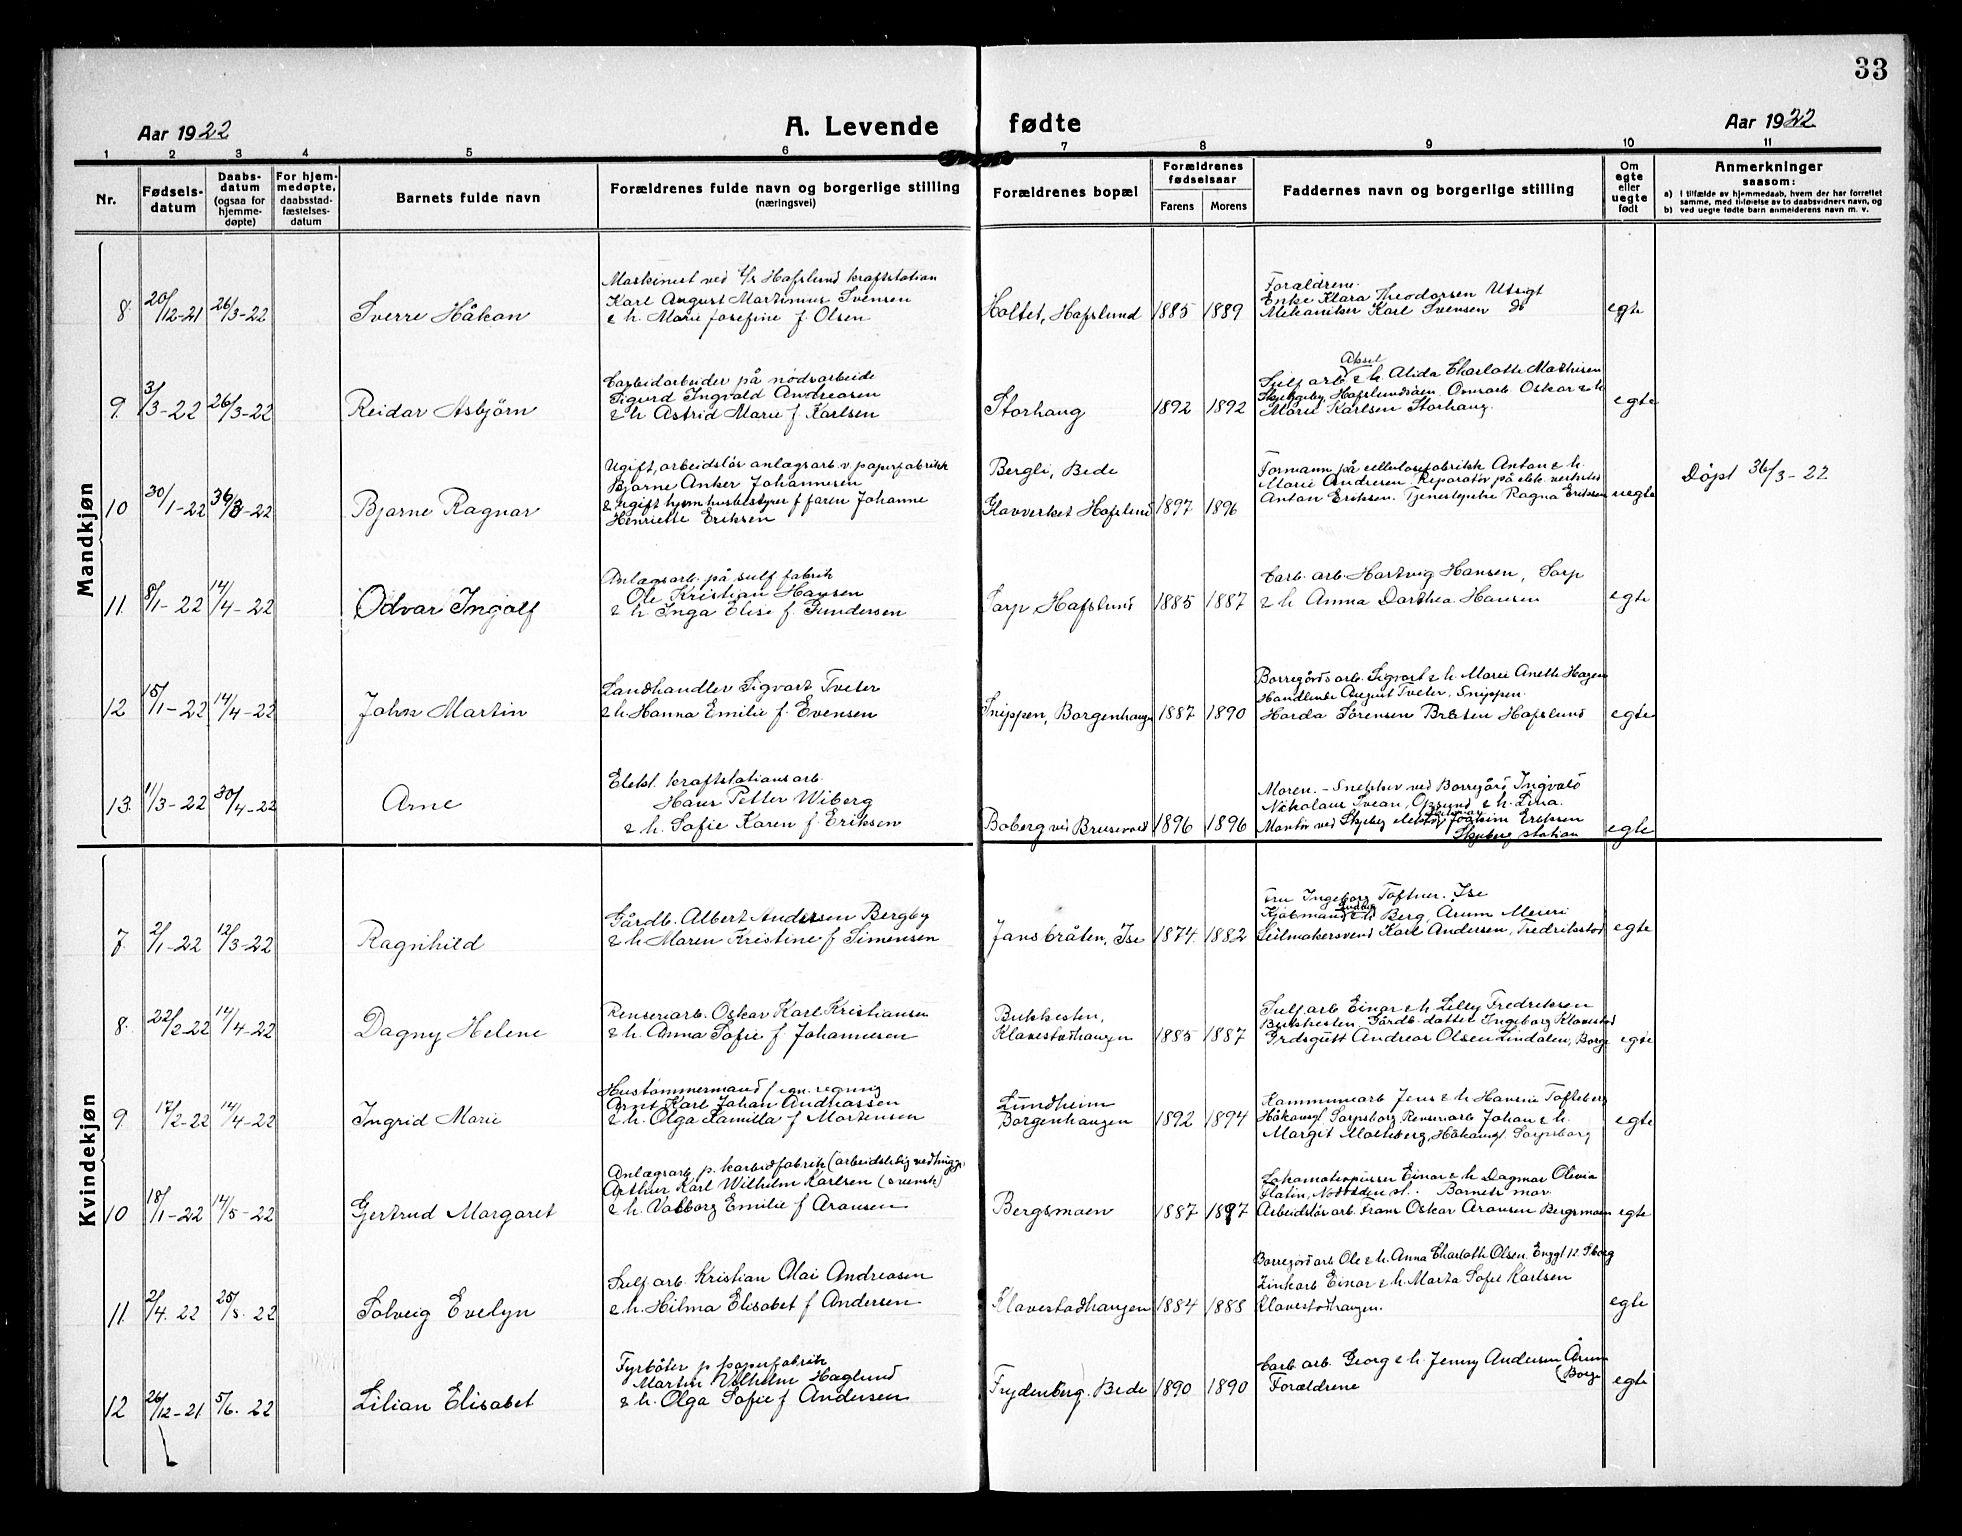 33
Aar 1922
A. Levende fødte
Aar 1922
1 2 3 4 5 6 7 8 9 10 11
Nr.
Fødsels-
datum
Daabs-
datum
(ogsaa for
hjemme-
døpte)
For hjem-
medøpte,
daabsstad-
fæstelses-
datum
Barnets fulde navn
Forældrenes fulde navn og borgerlige stilling
(næringsvei)
Forældrenes bopæl
Forældrenes
fødselsaar
Farens Morens
Faddernes navn og borgerlige stilling
Om
egte
eller
uegte
født
Anmerkninger
saasom:
a) I tilfælde av hjemmedaab, hvem der har forrettet
samme, med tilføielse av to daabsvidners navn, og
b) ved uegte fødte barn anmelderens navn m. v.
Mandkjøn
8 20/12-21 26/3-22 Sverre Håkon
Maskinist ved Hafslund kraftstation
Karl August Martinius Svensen
& h. Marie Josefine f. Olsen
Holtet, Hafslund 1885 1889
Forældrene.
Enke Klara Theodorsen Utsigt
Mekaniker Karl Svensen do
egte
9. 3/3-22 26/3-22 Reidar Asbjörn
Carbidarbeider på nödsarbeide
Sigurd Ingvald Andreasen
& h Astrid Marie f. Karlsen
Storhaug 1892 1892
Aksel
Sulf arb & h. Alida Charlotte Mathisen
Skjebgeby, Hafslundsöen. Omr.arb. Oskar & h
Marie Karlsen Storhaug.
egte
10 30/1-22 Bjarne Ragnar
Ugift, arbeidslös anlægsarb. v. paperfabrikk
Bjarne Anker Johannesen
& ugift hjem. husbestyrer f. faren Johanne
Henriette Eriksen
Bergli, Bede
Klavverket Hafslund 1897 1896
Formann på cellulosefabrikk Anton & h.
Marie Andersen. Reparatör på elek. verksted
Anton Eriksen. Tjenestepike Ragna Eriksen
uegte
Döpt 36/3-22
11. 8/1-22 14/4-22 Odvar Ingolf
Anlægsarb. på sulf fabrik
Ole Kristian Hansen
& h. Inga Elise f. Gundersen
Sarp Hafslund 1885 1887
Carb. arb. Hartvig Hansen, Sarp
& h. Anna Dorthea Hansen
egte
12 15/1-22 14/4-22 John Martin
Landhandler Sigvart Tveter
& h. Hanna Emilie f. Evensen
Snippen, Borgenhaugen 1887 1890
Borregårds arb. Sigvart & h. Marie Anette Hagen
Handlende August Tveter, Snippen.
Harda Sørensen Bråten Hafslund
egte
13. 11/3-22 30/4-22 Arne
Elekt. kraftstationsarb.
Hans Petter Wiberg
& h. Sofie Karen f. Eriksen
Boberg ved Brusevold 1896 1896
Moren. - Snekker ved Borregård Ingvald
Nikolaus Svean, Opsund & h. Lina.
Montör ved Skjeberg Joakim Eriksen
Skjeberg station
egte
Kvindekjøn
7 2/1-22 12/3-22 Ragnhild
Gårdb. Albert Andersen Bergby
& h. Maren Kristine f Simensen
Jansbråten, Ise 1874. 1882
Fru Ingeborg Toftner. Ise
Kjöbmand Ludvig & h Berg, Årum Meieri
Seilmakersvend Karl Andersen, Fredrikstad
egte
8. 22/2-22 14/4-22 Dagny Helene
Renseriarb. Oskar Karl Kristiansen
& h. Anna Sofie f Johannesen
Bukkesten,
Klavestadhaugen 1885 1887
Sulf. arb Einar & h. Lilly Fredriksen
Bukkesten, Gårdb. datter Ingeborg Klavestad
Grdsgutt Andreas Olsen Lindalen, Borge
egte
9 17/2-22 14/4-22 Ingrid Marie
Hustömmermand f egn. regning
Arnt Karl Johan Andreassen
& h. Olga Kamilla f Mortensen
Lundheim
Borgenhaugen 1892 1894
Kommunearb Jens & h Hansine Tofteberg
Håkonsg. Sarpsborg, Renseriarb. Johan & h.
Margit Molteberg, Håkonsg. Sarpsborg
egte
10 18/1-22 14/5-22 Gertrud Margaret
Anlægsarb p. karbidfabrik (arbeidsledig vedhugge
Arthur Karl Wilhelm Karlsen (svensk)
& h. Valborg Emilie f Aronsen
Bergsmoen 1887 1897
Lokomotivpusser Einar & h Dagmar Olivia
Flatin, Notodden st. Barnets mor
Arbeidslös arb. Frans Oskar Aronsen Bergsmoen
egte
11. 2/4. 22 25/5. 22 Solveig Evelyn
Sulf arb. Kristian Olai Andreasen
& h. Hilma Elisabet f Andersen
Klavestadhaugen 1884 1888
Borregård arb Ole & h. Anna Charlotte Olsen. Enggt 12. Sborg
Zinkarb Einar & h. Marta Sofie Karlsen
Klavestadhaugen.
egte
12 26/12-21 5/6. 22 Lilian Elisabet
Fyrböter p paperfabrik
Martin Vilhelm Haglund
& h. Olga Sofie f Andersen
Frydenberg. Bede 1890 1890
Carb arb. Georg & h. Jenny Andersen Årum
(Borge
Forældrene
egte